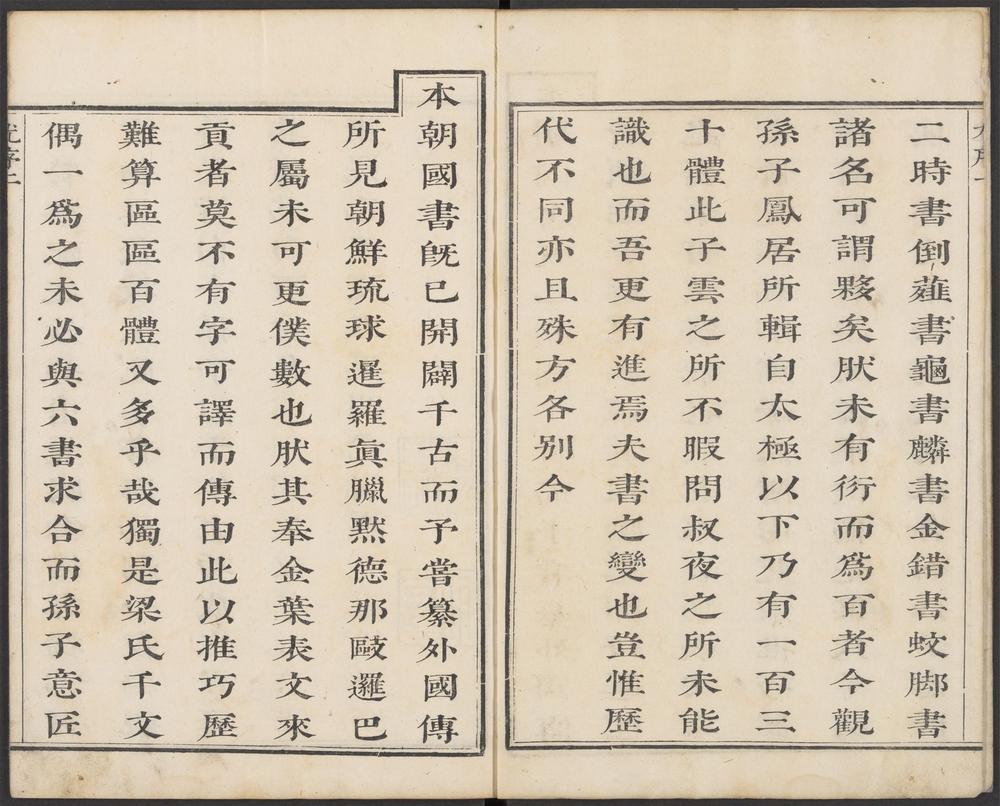 二時書倒薤書龜書麟書金錯書蛟脚書
諸名可謂夥矣肰未有衍而爲百者今觀
孫子鳳居所輯自太極以下乃有一百三
十體此子雲之所不暇問叔夜之所未能
識也而吾更有進焉夫書之變也豈惟歷
代不同亦且殊方各别今
本朝國書旣已開闢千古而予嘗纂外國傳
所見朝鮮琉球暹羅眞臘黙德那歐邏巴
之屬未可更僕數也肰其奉金葉表文來
貢者莫不有字可譯而傳由此以推巧歷
難算區區百體又多乎哉獨是梁氏千文
偶一爲之未必與六書求合而孫子意匠